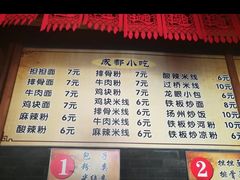 成都小吃
担担面 7元
排骨面 7元
牛肉面 7元
鸡块面 7元
牛肉面 7元
麻辣粉 6元
酸辣粉 6元
排骨粉 7元
牛肉粉 7元
鸡块粉 7元
鸡块米线 7元
排骨米线 7元
牛肉米线 7元
麻辣米线 6元
酸辣米线 6元
过桥米线 6元
龙眼小包 6元
铁板炒面 6元
扬州炒饭 6元
铁板炒河粉 6元
铁板炒凉粉 6元
1
包
2
担担
排骨